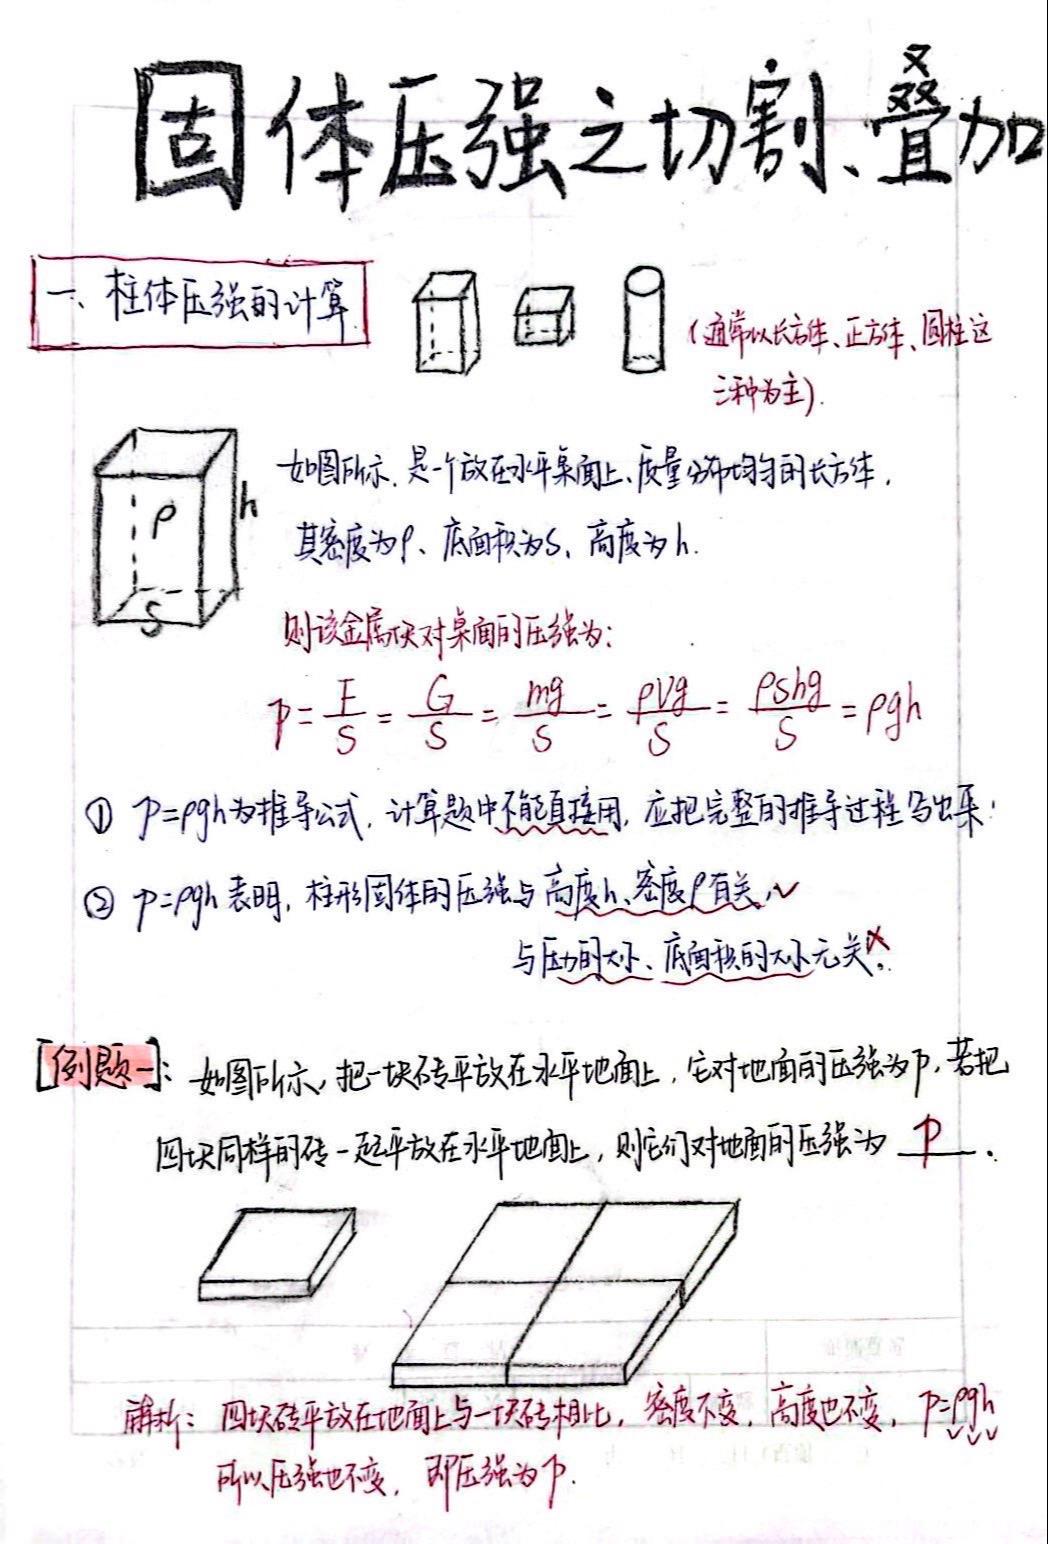 固体压强之切割、叠加
一、柱体压强的计算
(通常以长方体、正方体、圆柱这
三种为主).
ρ h S
如图所示, 是一个放在水平桌面上、质量分布均匀的长方体,
其密度为ρ、底面积为S、高度为h.
则该金属块对桌面的压强为:
p = F/S = G/S = mg/S = ρVg/S = ρShg/S = ρgh
① p=ρgh为推导公式, 计算题中不能直接用, 应把完整的推导过程写出来;
② p=ρgh 表明, 柱形固体的压强与高度h、密度ρ有关, ✓
与压力的大小、底面积的大小无关. ×
[例题一]: 如图所示, 把一块砖平放在水平地面上, 它对地面的压强为p, 若把
四块同样的砖一起平放在水平地面上, 则它们对地面的压强为 p .
解析: 四块砖平放在地面上与一块砖相比, 密度不变, 高度也不变, p=ρgh
所以压强也不变, 即压强为p.